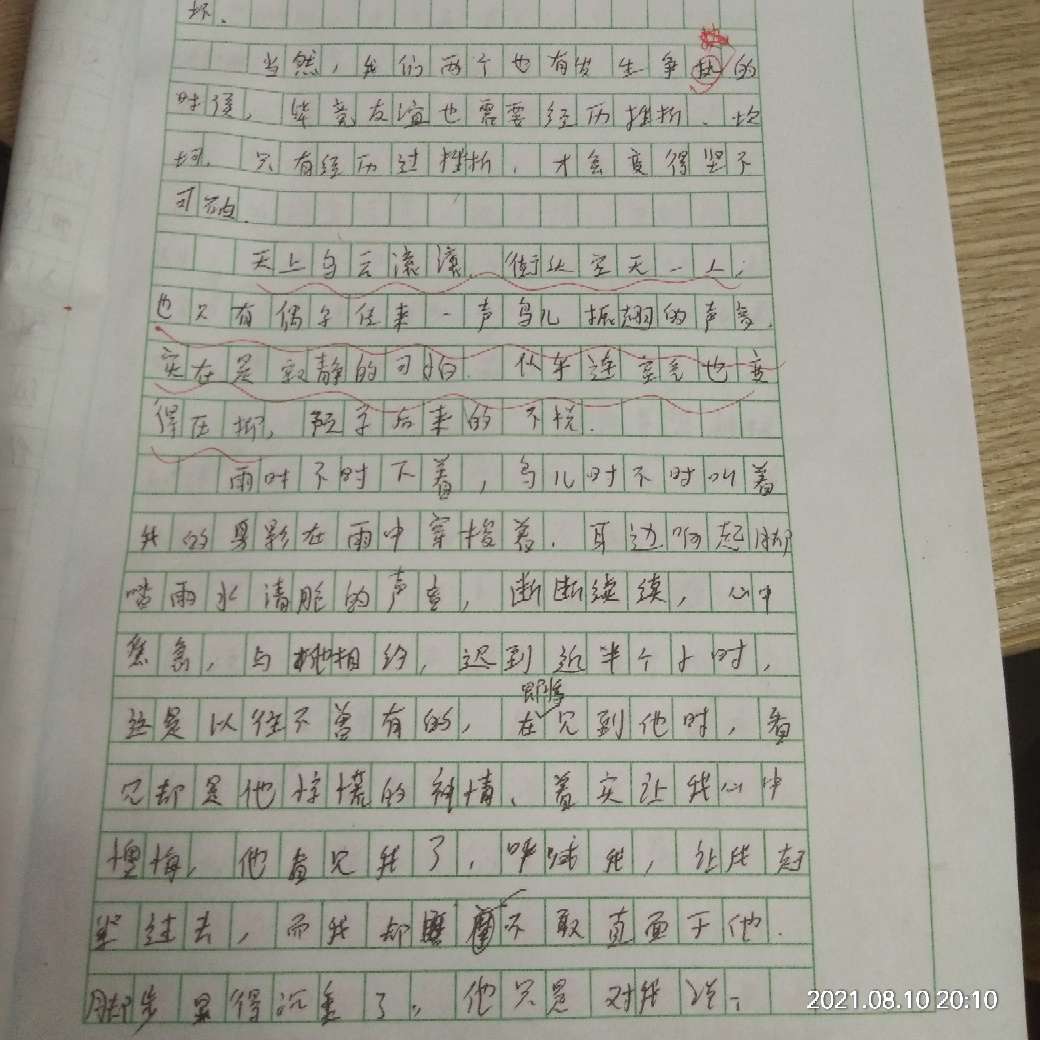 坏.
当然，我们两个也有发生争执的
时候，毕竟友谊也需要经历挫折、坎
坷. 只有经历过挫折，才会变得坚不
可
天上乌云滚滚，街上空无一人，
也只有偶尔传来一声鸟儿振翅的声音.
实在是寂静的可怕. 似乎连空气也变
得压抑，预示后来的不悦.
雨时不时下着，鸟儿时不时叫着
我的身影在雨中穿梭着. 耳边响起脚
踏雨水清脆的声音，断断续续，心中
焦急，与他相约，迟到近半个小时，
这是以往不曾有的，在见到他时，看
即将
见却是他惊慌的神情、着实让我心中
懊悔，他看见我了，呼喊我，让我赶
过去，而我却不敢直面于他.
脚步显得沉重了。他只是对我说：
2021.08.10 20:10